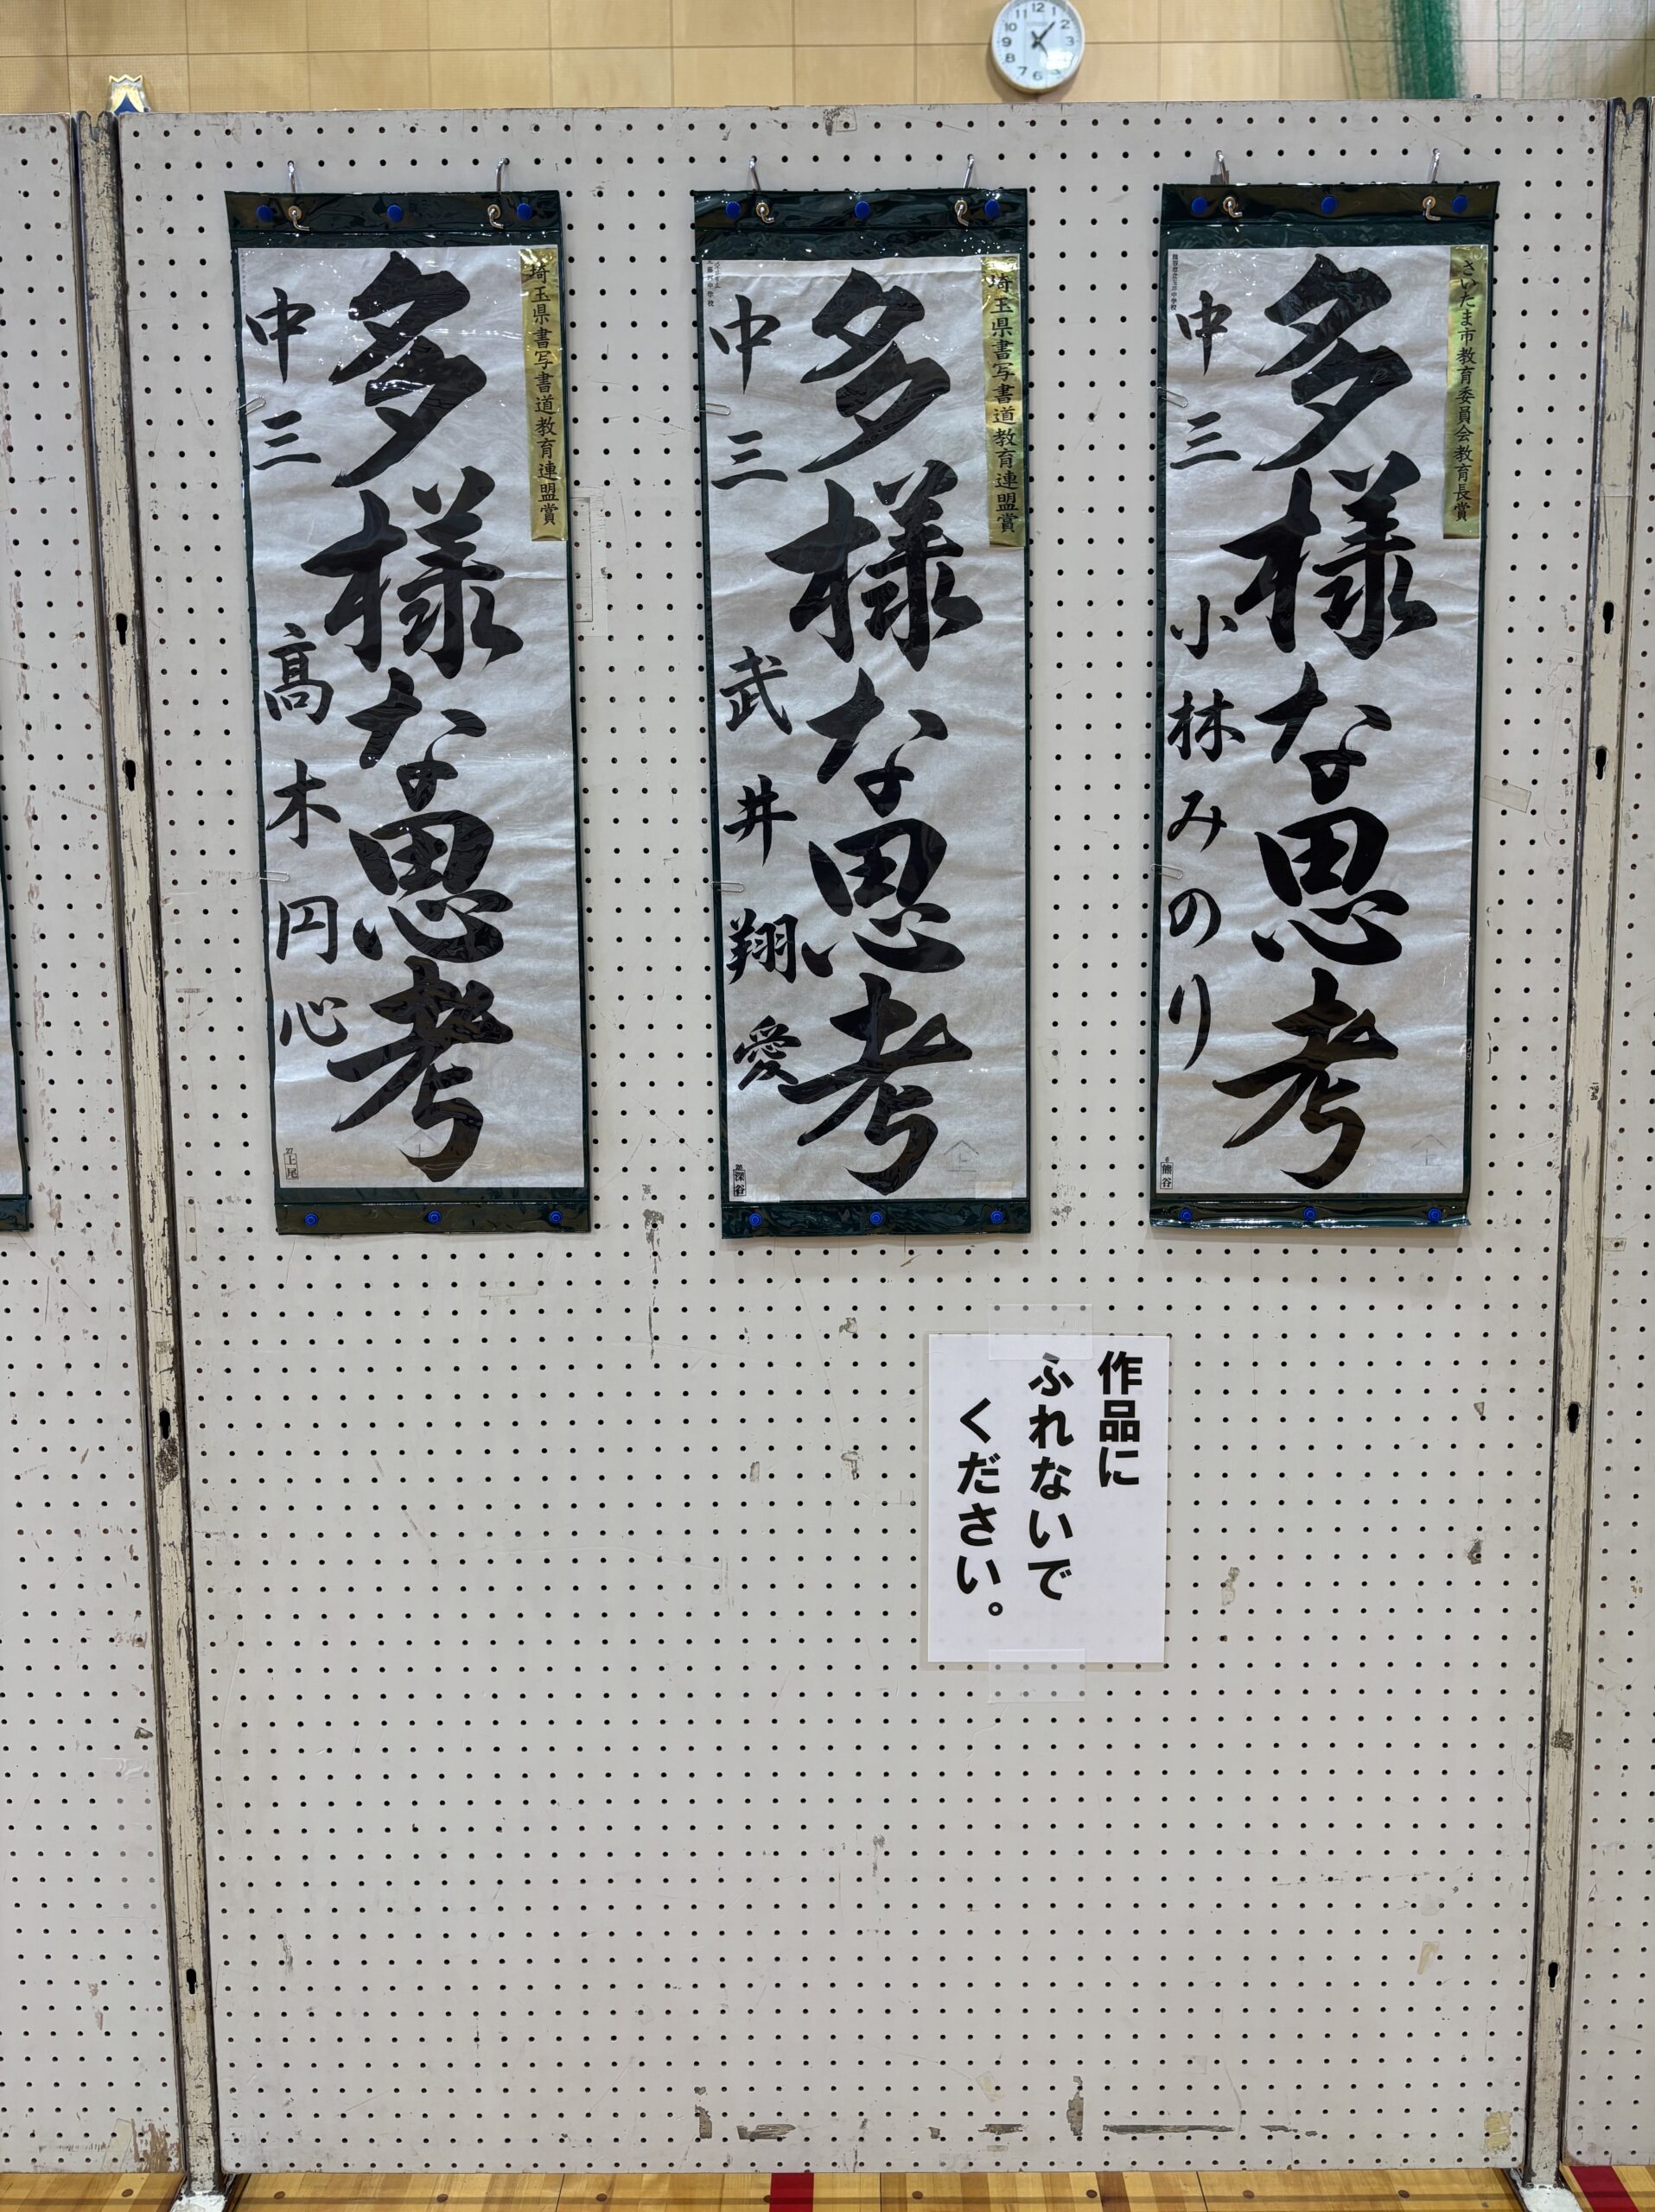 12
1
2
3
4
5
6
7
8
9
10
11
さいたま市教育委員会教育長賞
多様な思考
中三 小林みのり
熊谷
埼玉県書写書道教育連盟賞
多様な思考
中三 武井翔愛
深谷
埼玉県書写書道教育連盟賞
多様な思考
中三 髙木円心
上尾
作品に
ふれないで
ください。